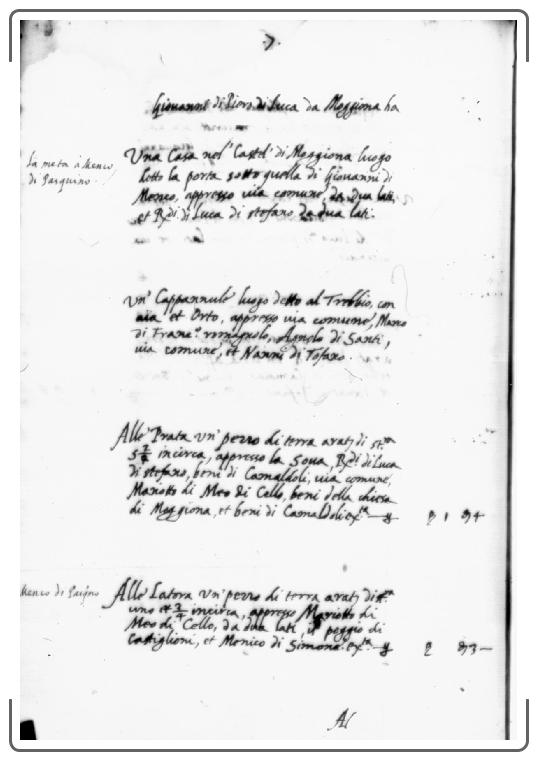 .7.
Giovanni di Piero di Luca da Moggiona ha
La metà à Menco
di Pasquino.
Una Casa nel' Castel' di Moggiona luogo
detto la porta sotto quella di Giovanni di
Menco, appresso via comune, da dua lati,
et R.di di Luca di stefano da dua lati.
un' Cappannule luogo detto al Trebbio, con
aia et Orto, appresso via comune, Marco
di Franc.o romagnolo, Agnolo di Santi,
via comune, et Nanni di Tofano.
Alle' Prata un' pezzo di terra arat; di st.ra
5 3/4 incirca, appresso la Sova, R.di di Luca
di stefano, beni di Camaldoli, via comune,
Mariotto di Meo di Cello, beni della chiesa
di Moggiona, et beni di Camaldoli
Menco di
Alle Latora un' pezzo di terra arat; di st.ra
uno et 3/4 incirca, appresso Mariotto di
Meo di Cello, da dua lati, il poggio di
Castiglioni, et Menico di Simone.
Al